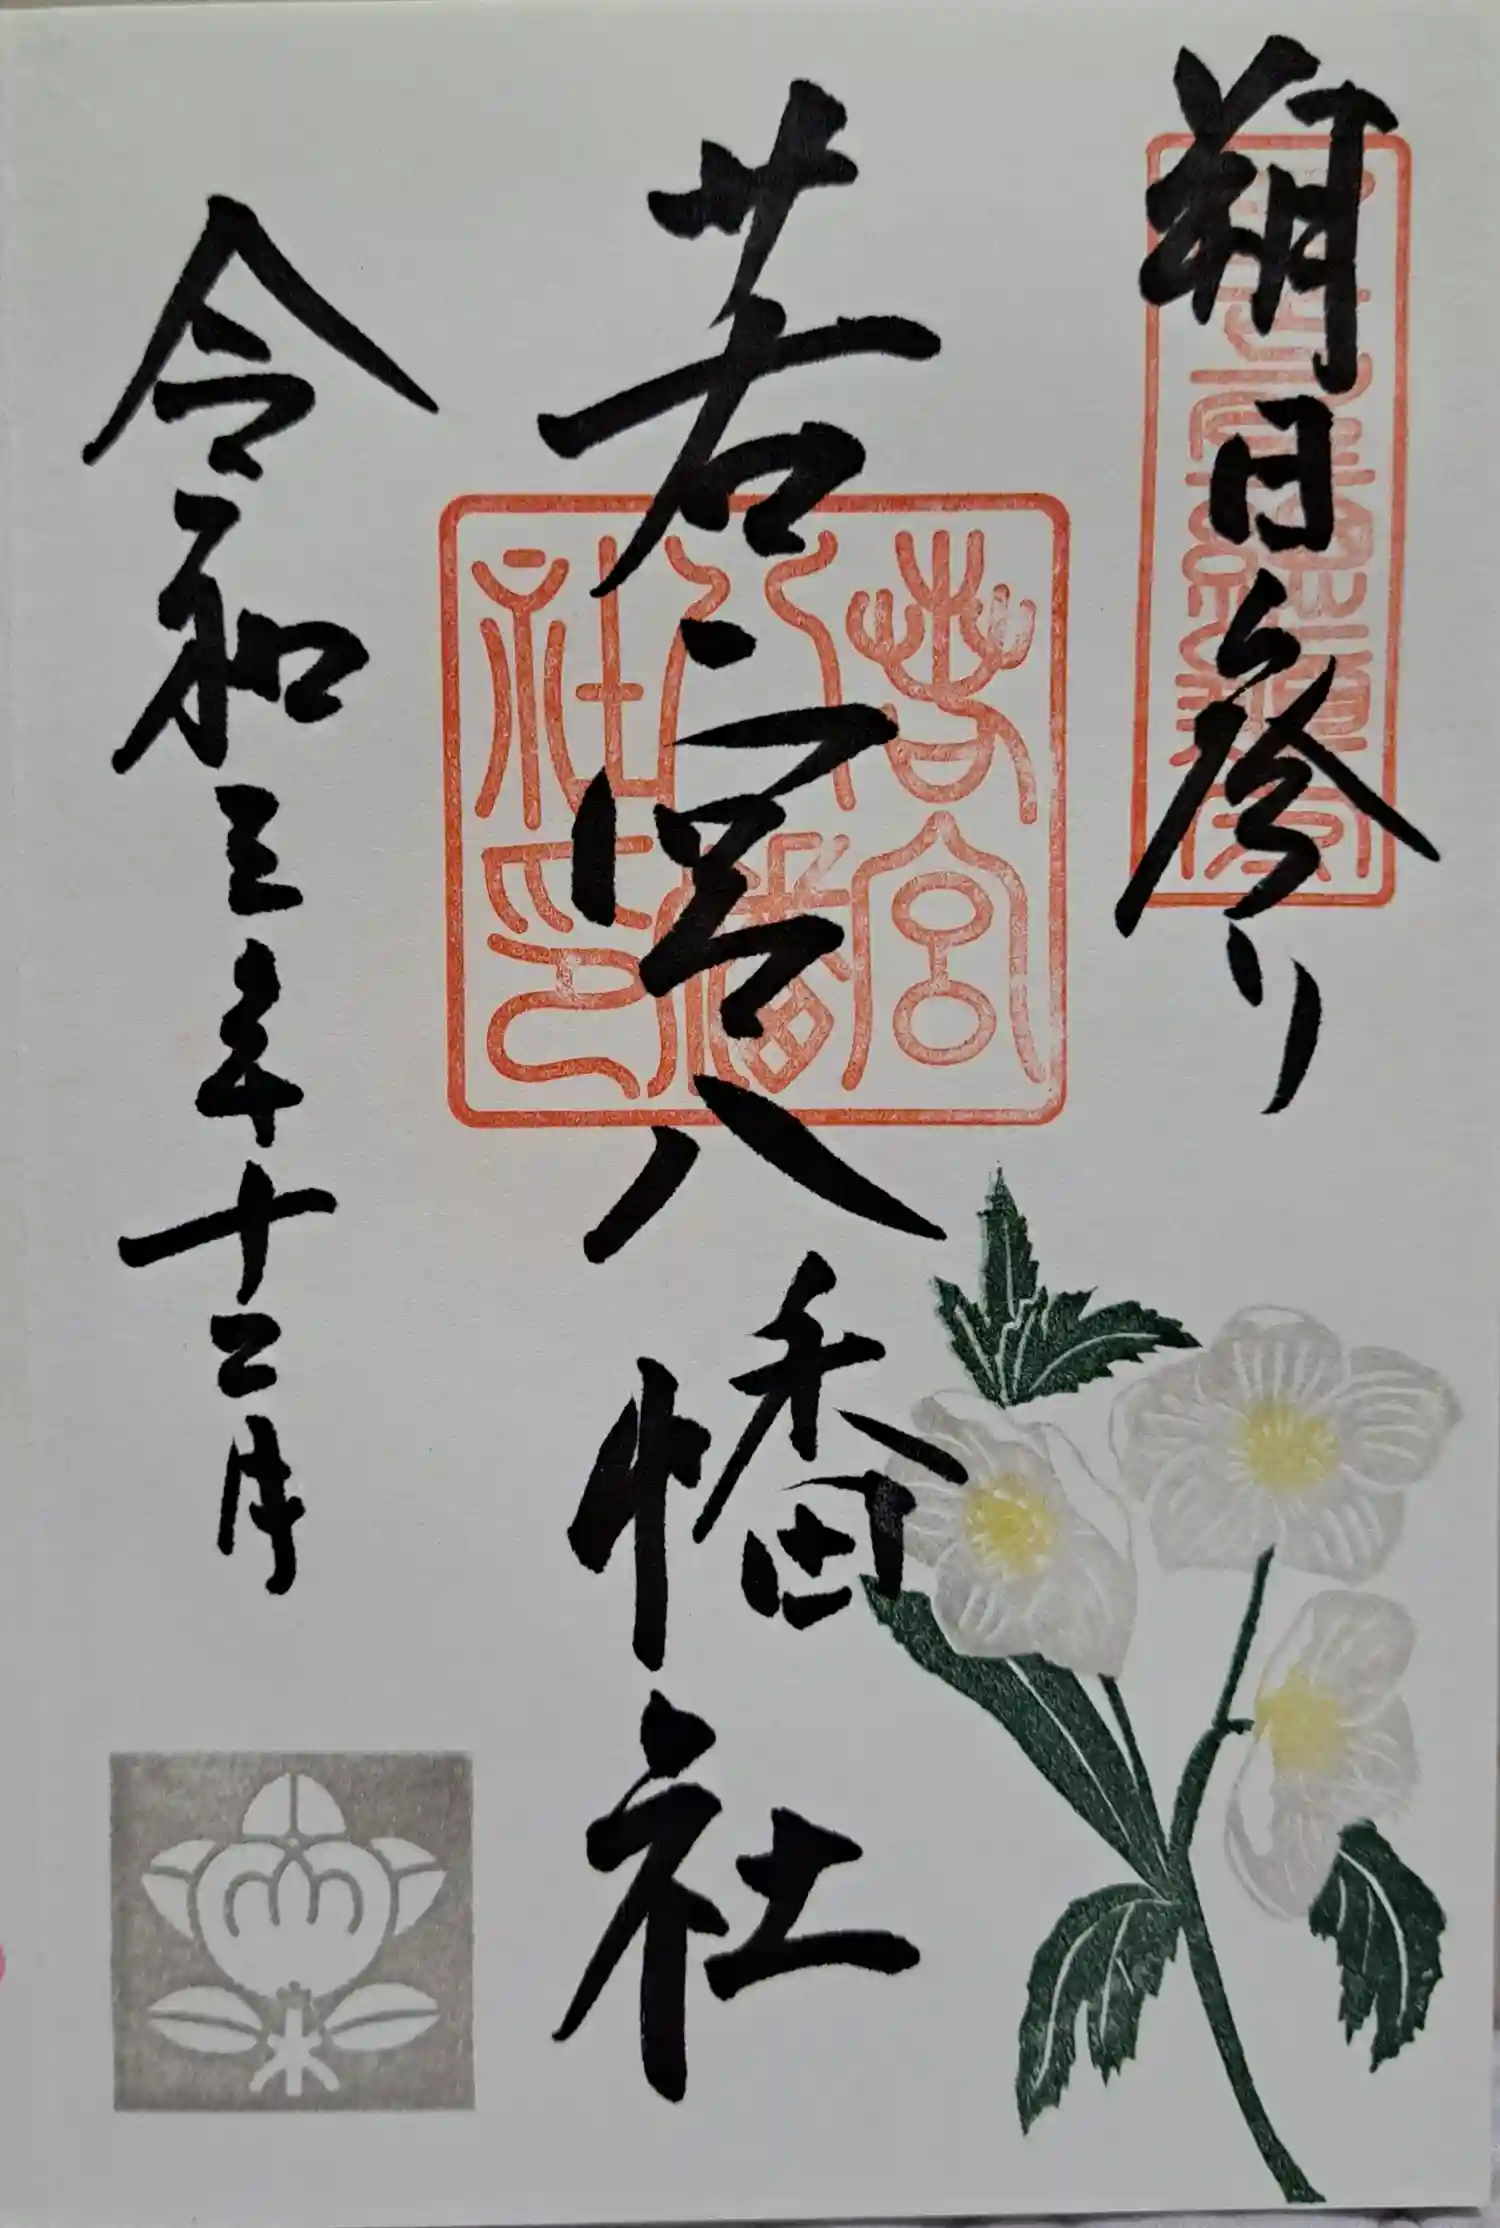 朔日参り
若宮八幡社
若宮
八幡
社印
令和三年十二月